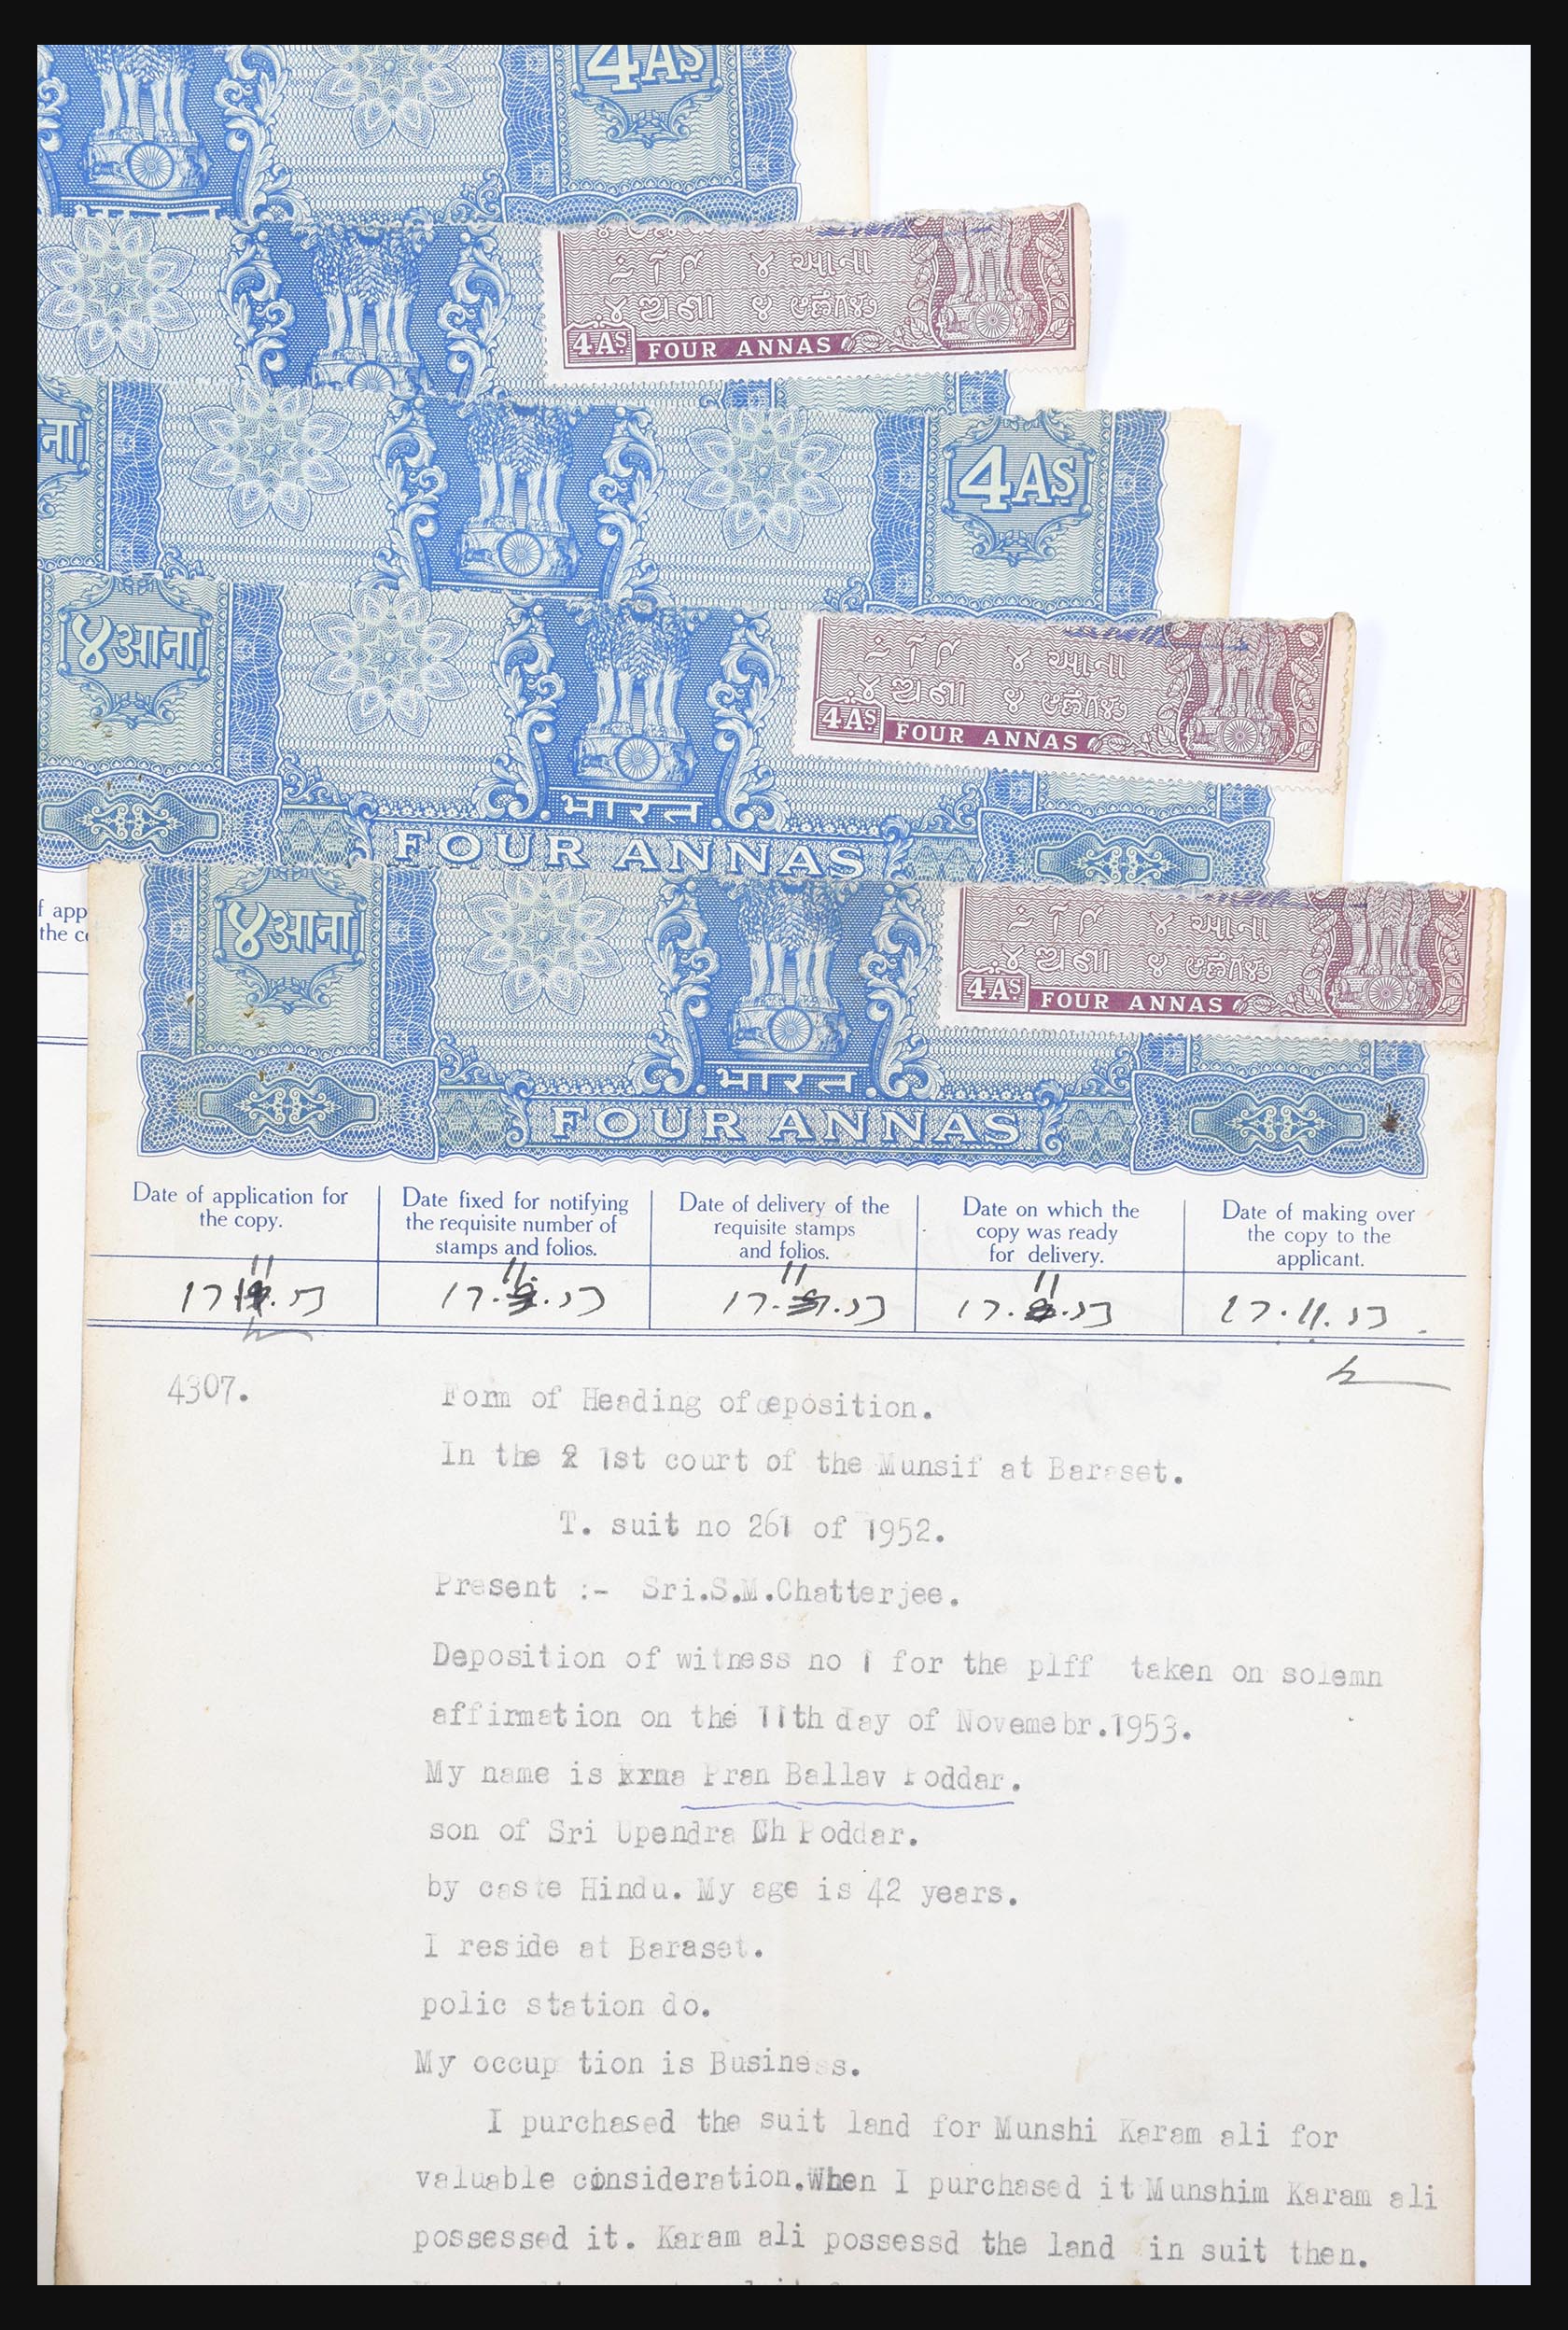 4AS
भारत
४ आना
४ ଅଣା
4AS FOUR ANNAS
आना
4AS
४ आना
४ આના
4AS FOUR ANNAS
भारत
FOUR ANNAS
f app
the c
४ आना
४ આના
4AS FOUR ANNAS
भारत
FOUR ANNAS
Date of application for
the copy.
Date fixed for notifying
the requisite number of
stamps and folios.
Date of delivery of the
requisite stamps
and folios.
Date on which the
copy was ready
for delivery.
Date of making over
the copy to the
applicant.
17.11.53
17.11.53
17.11.53
17.11.53
17.11.53
4307.
Form of Heading of deposition.
In the 1st court of the Munsif at Baraset.
T. suit no 261 of 1952.
Present :- Sri.S.M.Chatterjee.
Deposition of witness no 1 for the plff taken on solemn
affirmation on the 11th day of Novemebr.1953.
My name is Pran Ballav Poddar.
son of Sri Upendra Ch Poddar.
by caste Hindu. My age is 42 years.
I reside at Baraset.
polic station do.
My occup tion is Business.
I purchased the suit land for Munshi Karam ali for
valuable consideration.When I purchased it Munshim Karam ali
possessed it. Karam ali possessd the land in suit then.